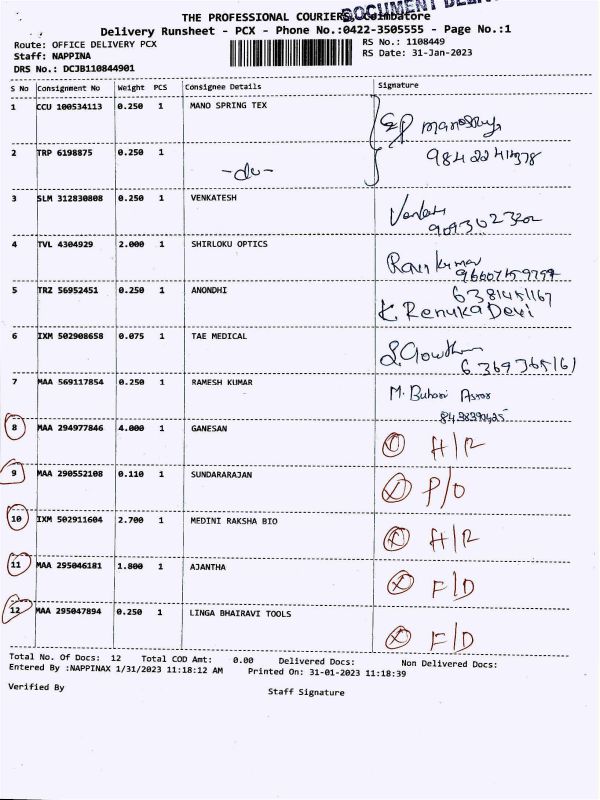 DOCUMENT DELIV
THE PROFESSIONAL COURIERS, Coimbatore
Delivery Runsheet - PCX - Phone No.:0422-3505555 - Page No.:1
Route: OFFICE DELIVERY PCX RS No.: 1108449
Staff: NAPPINA RS Date: 31-Jan-2023
DRS No.: DCJB110844901
S No Consignment No Weight PCS Consignee Details Signature
1 CCU 100534113 0.250 1 MANO SPRING TEX
2 TRP 6198875 0.250 1 -do-
3 SLM 312830808 0.250 1 VENKATESH
4 TVL 4304929 2.000 1 SHIRLOKU OPTICS Ravi Kumar
5 TRZ 56952451 0.250 1 ANONDHI 6381451167
K. Renuka Devi
6 IXM 502908658 0.075 1 TAE MEDICAL
6369365161
7 MAA 569117854 0.250 1 RAMESH KUMAR M. Buhari
8 MAA 294977846 4.000 1 GANESAN H/R
9 MAA 290552108 0.110 1 SUNDARARAJAN P/O
10 IXM 502911604 2.700 1 MEDINI RAKSHA BIO H/R
11 MAA 295046181 1.800 1 AJANTHA F/D
12 MAA 295047894 0.250 1 LINGA BHAIRAVI TOOLS F/D
Total No. Of Docs: 12 Total COD Amt: 0.00 Delivered Docs: Non Delivered Docs:
Entered By :NAPPINAX 1/31/2023 11:18:12 AM Printed On: 31-01-2023 11:18:39
Verified By Staff Signature